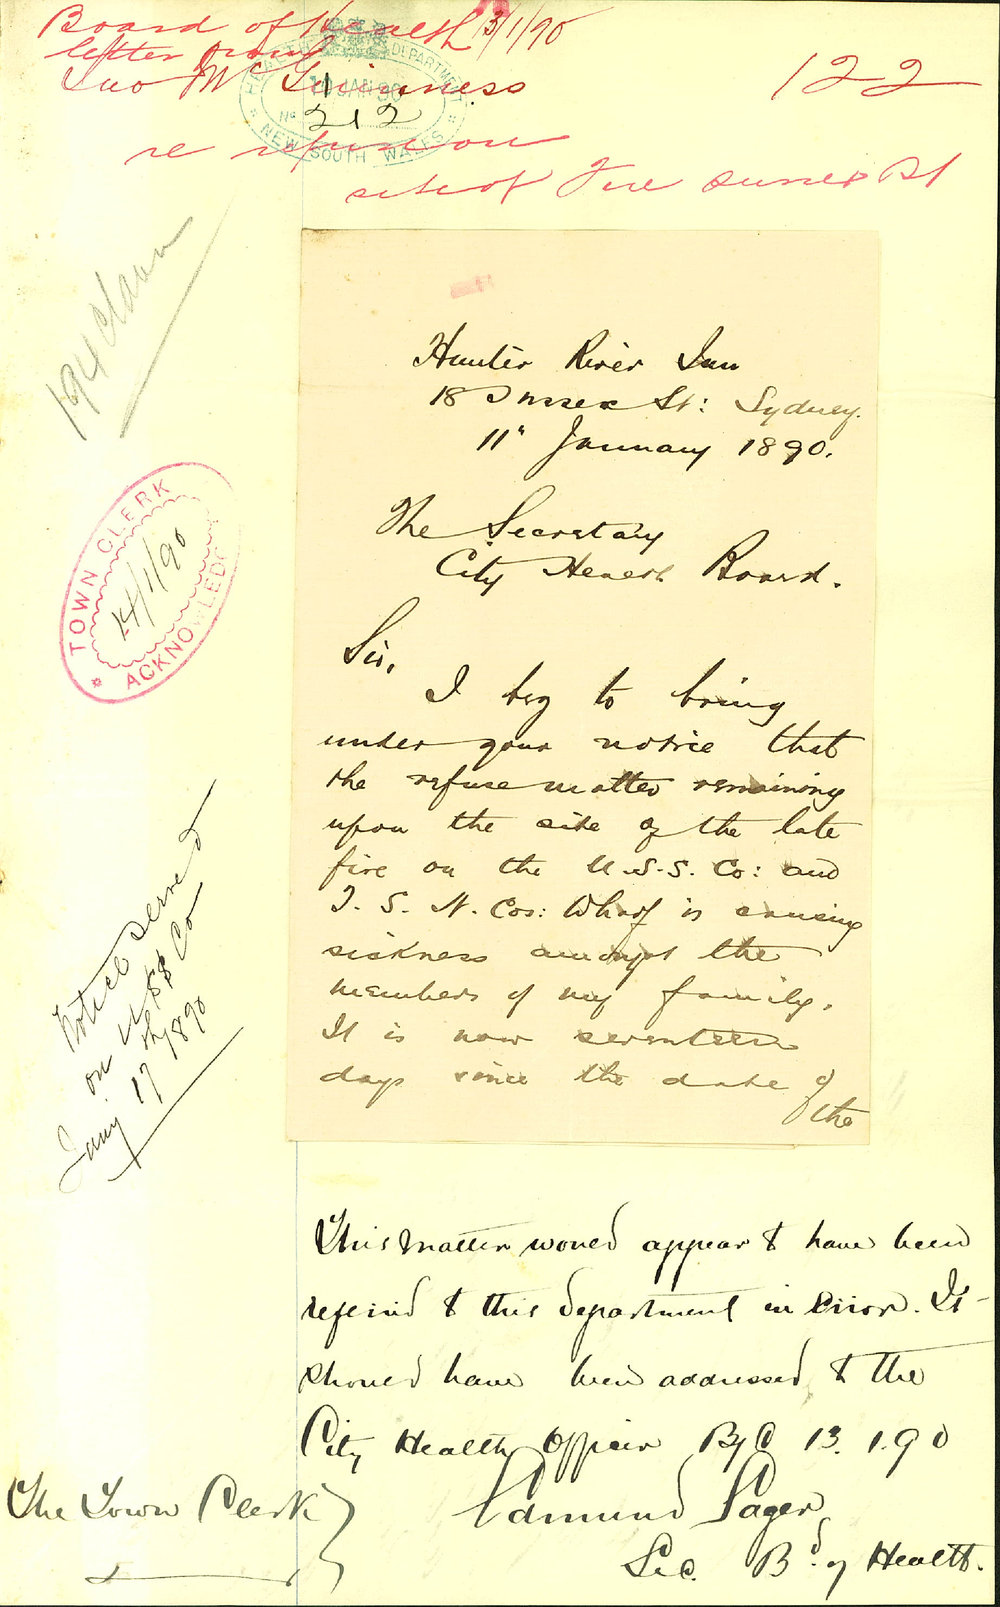 Board of Health 13/1/90
letter from
Jno McGuinness
122
HEALTH DEPARTMENT
JAN 90
No 212
NEW SOUTH WALES
re
site of Fire Sussex St
194
Hunter River Inn
18 Sussex St: Sydney.
11th January 1890.
The Secretary
City Health Board.
Sir,
I beg to bring
under your notice that
the refuse matter remaining
upon the site of the late
fire on the U.S.S. Co: and
I. S. N. Cos: Wharf is causing
sickness amongst the
members of my family.
It is now seventeen
days since the date of
the
TOWN CLERK
14/1/90
ACKNOWLEDGED
Notice served
on U SS Co
Jany 17th 1890
This matter would appear to have been
referred to this department in Error. It
should have been addressed to the
City Health Officer B, C 13.1.90
The Town Clerk
Edmund Sager
Sec. Bd. of Health.